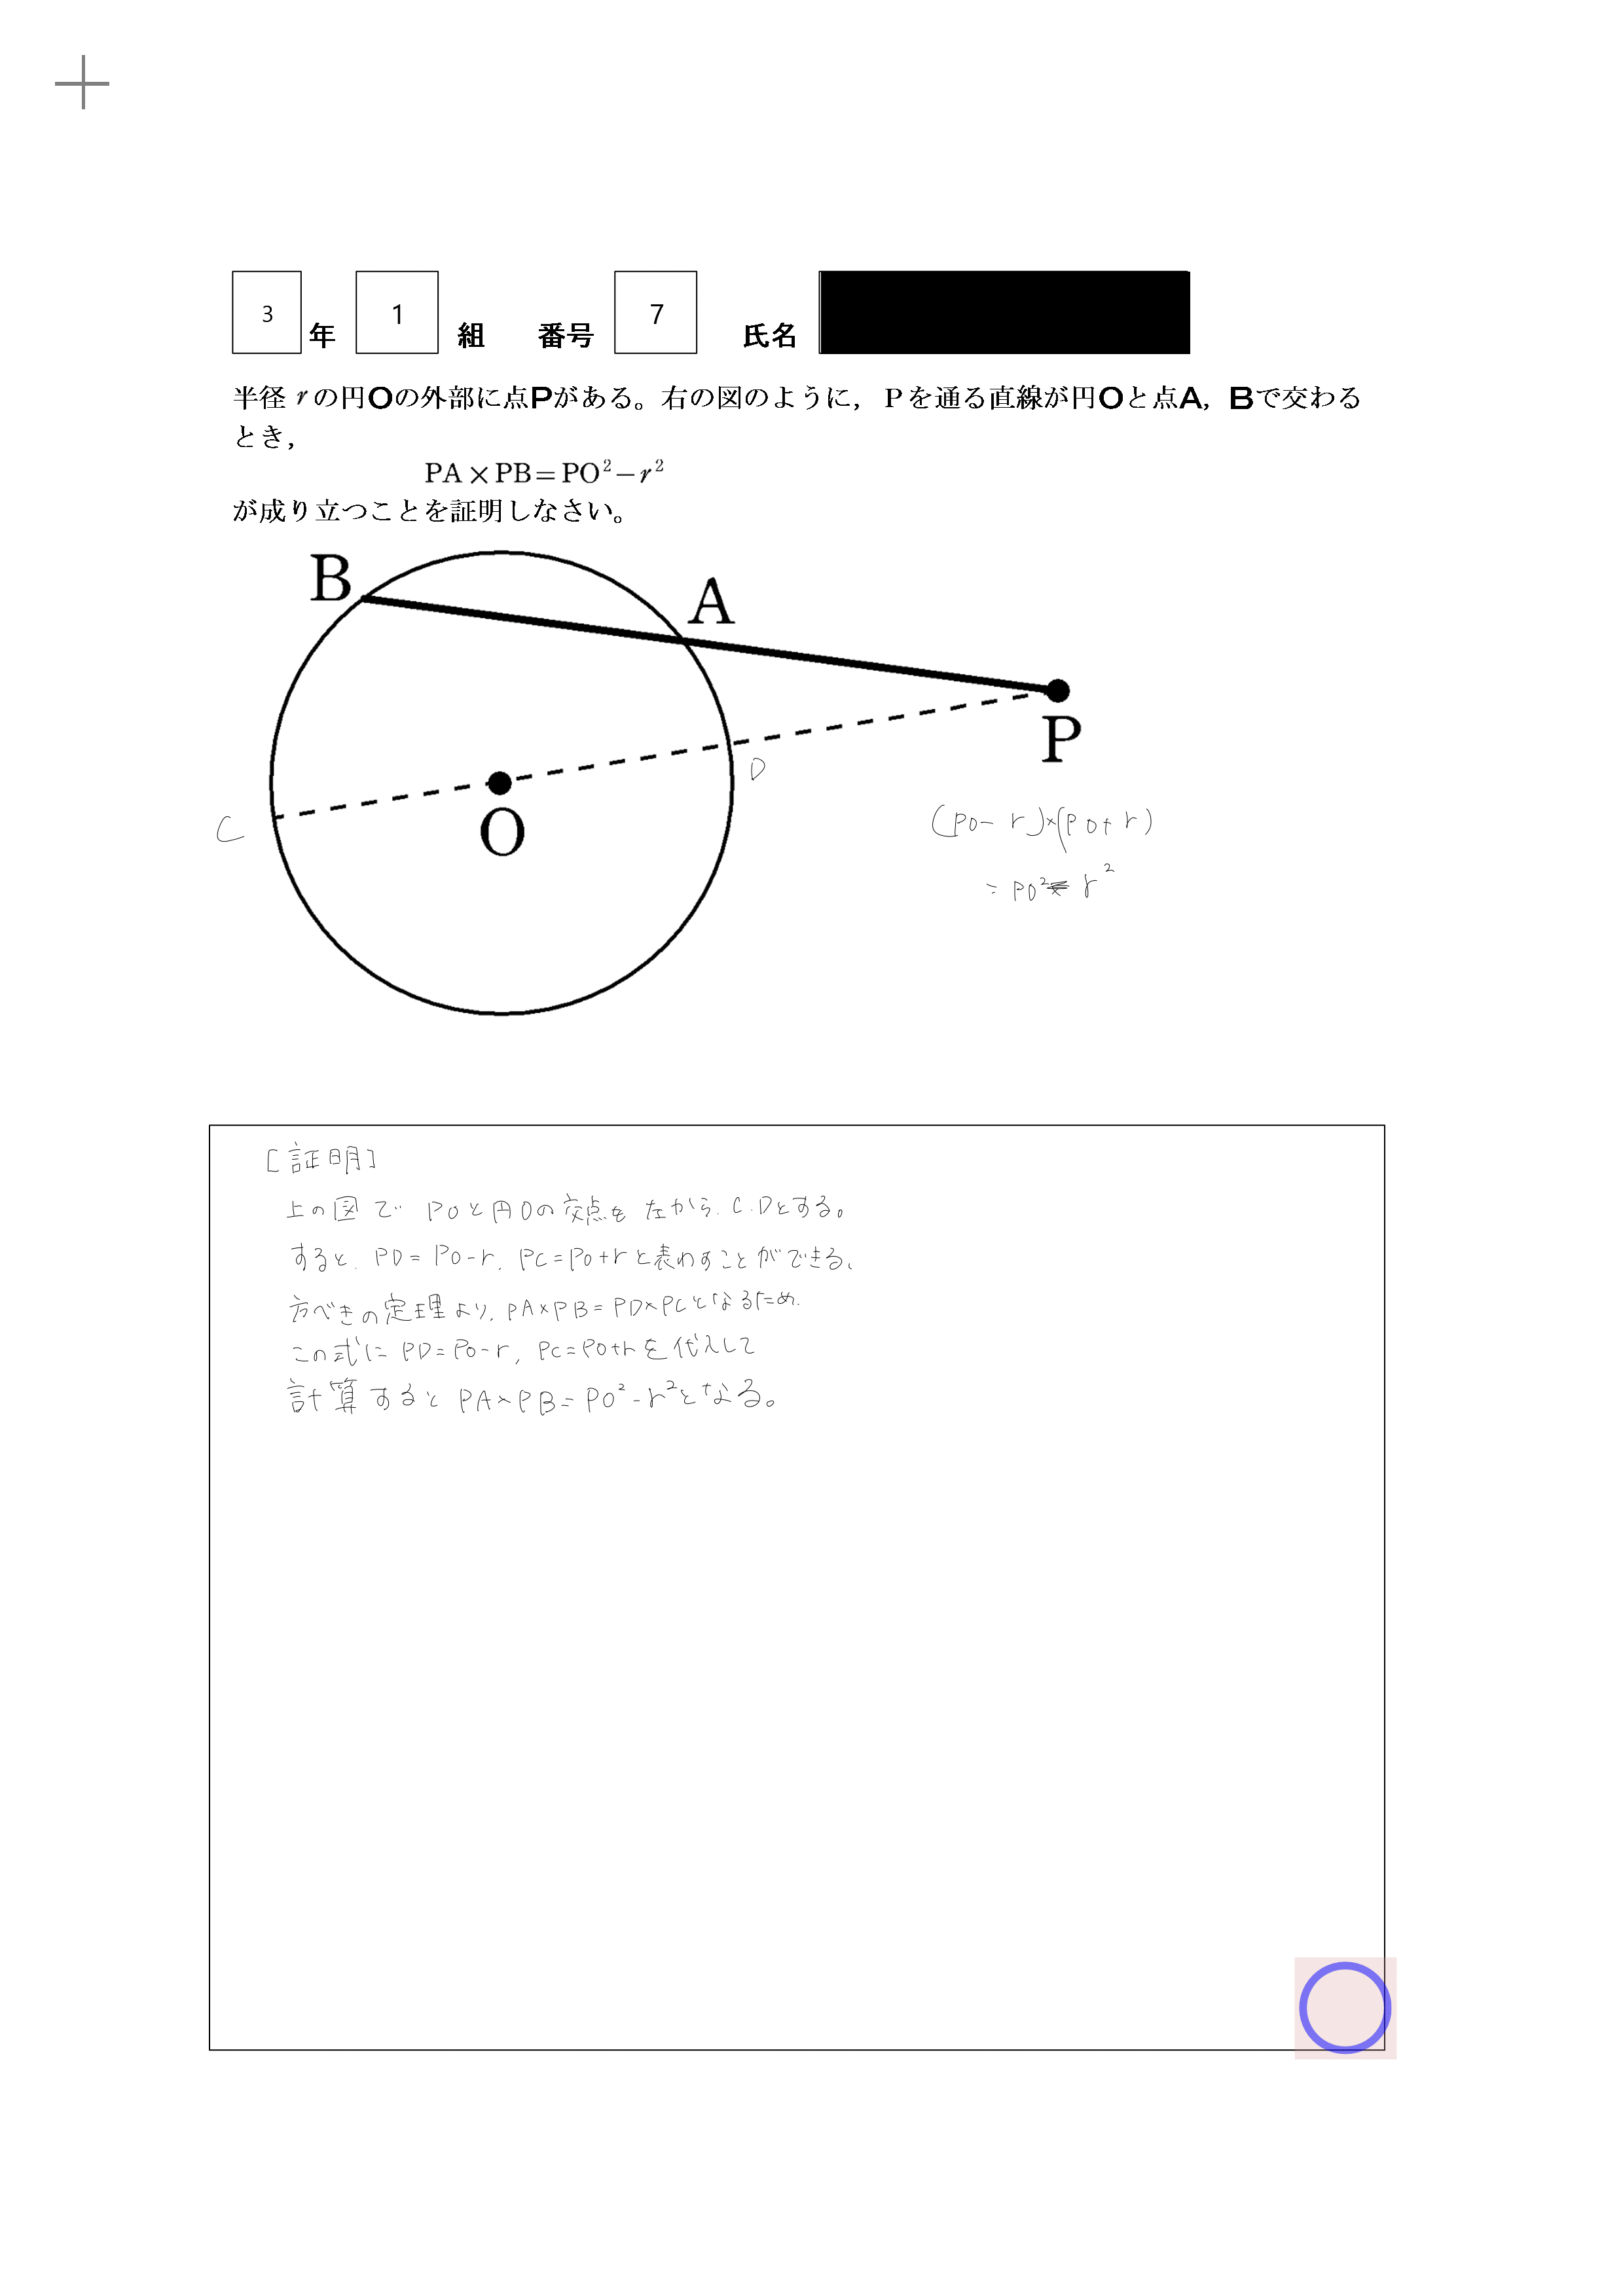 3 年 1 組 番号 7 氏名
半径 r の円Oの外部に点Pがある。右の図のように，Pを通る直線が円Oと点A，Bで交わる
とき，
PA×PB=PO²−r²
が成り立つことを証明しなさい。
B
A
P
D
C
O
(PO-r)×(PO+r)
=PO²-r²
[証明]
上の図で POと円Oの交点を左から、C.Dとする。
すると、PD=PO-r, PC=PO+rと表わすことができる、
方べきの定理より, PA×PB=PD×PCとなるため、
この式に PD=PO-r, PC=PO+rを代入して
計算すると PA×PB=PO²-r²となる。